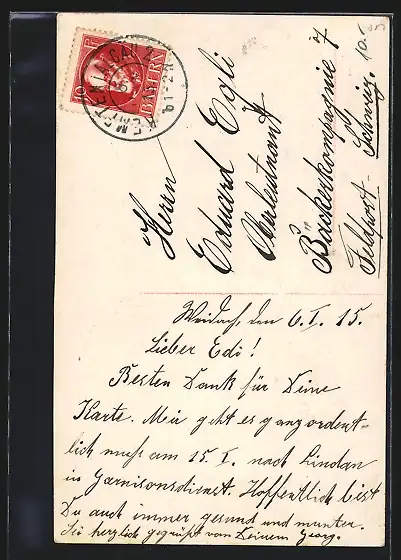 BAYERN
10 PF
KEMPTEN (ALLGÄU) 2
Herrn
Eduard Egli
Oberleutnant
Bäckerkompagnie 7
Feldpost - Schweiz.
Weidach, den 6.I.15.
Lieber Edi!
Besten Dank für Deine
Karte. Mir geht es ganz ordent-
lich muß am 15.I. nach Lindau
in Garnisonsdienst. Hoffentlich bist
Du auch immer gesund und munter.
Sei herzlich gegrüßt von Deinem Georg.